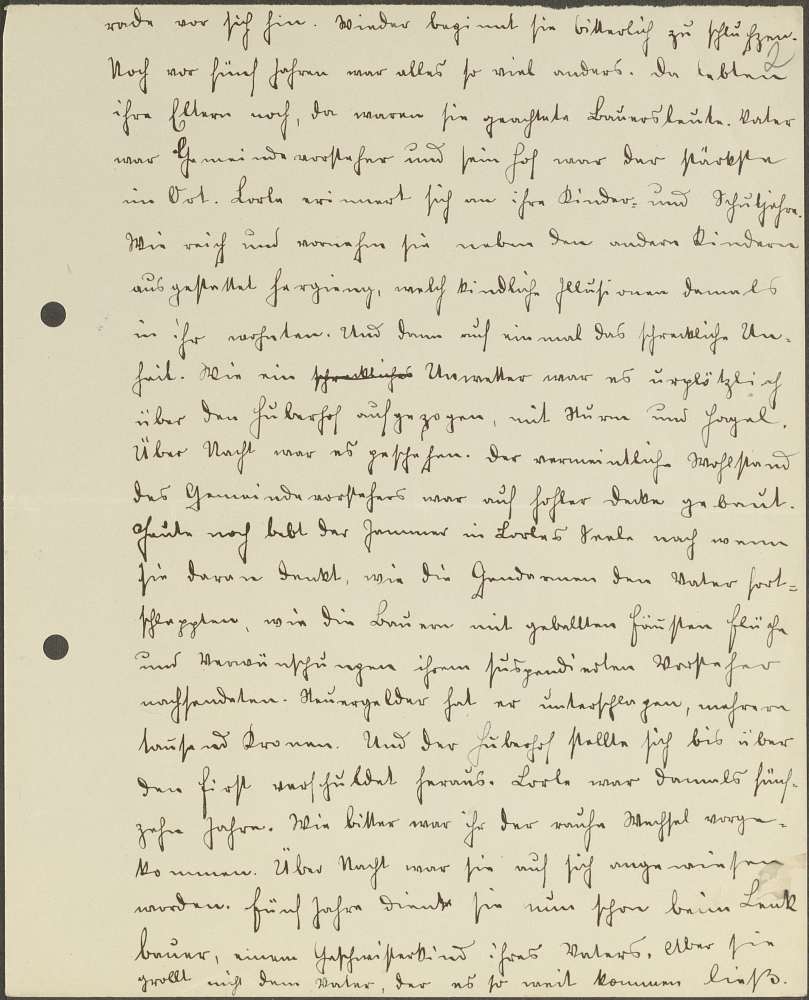 rade vor sich hin. Wieder beginnt sie bitterlich zu schluchzen.
2
Noch vor fünf Jahren war alles so viel anders. Da lebten
ihre Eltern noch, da waren sie geachtete Bauersleute. Vater
war Gemeindevorsteher und sein Hof war der stärkste
im Ort. Lorle erinnert sich an ihre Kinder- und Schuljahre.
Wie reich und vornehm sie neben den andern Kindern
ausgestattet herging, welch kindliche Illusionen damals
in ihr wohnten. Und dann auf einmal das schreckliche Un-
heil. Wie ein schreckliches Unwetter war es urplötzlich
über den Huberhof aufgezogen, mit Sturm und Hagel.
Über Nacht war es geschehen. Der vermeintliche Wohlstand
des Gemeindevorstehers war auf hohler Decke gebaut.
Heute noch bebt der Jammer in Lorles Seele nach wenn
sie daran denkt, wie die Gendarmen den Vater fort-
schleppten, wie die Bauern mit geballten Fäusten Flüche
und Verwünschungen ihrem suspendierten Vorsteher
nachsendeten. Steuergelder hat er unterschlagen, mehrere
tausend Kronen. Und der Huberhof stellte sich bis über
den First verschuldet heraus. Lorle war damals fünf-
zehn Jahre. Wie bitter war ihr der rauhe Wechsel vorge-
kommen. Über Nacht war sie auf sich angewiesen
worden. Fünf Jahre dient sie nun schon beim Lenk
bauer, einem Geschwisterkind ihres Vaters. Aber sie
grollt nicht dem Vater, der es so weit kommen ließ.